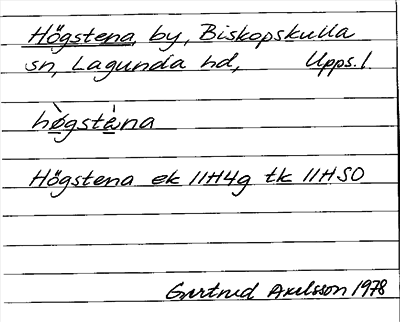 Högstena, by, Biskopskulla
sn, Lagunda hd, Upps. l.
hö̀gstè̱na
Högstena ek 11H4g tk 11HSO
Gertrud Axelsson 1978